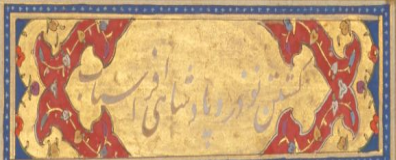 کشتن نوذر و پادشاهی افراسیاب